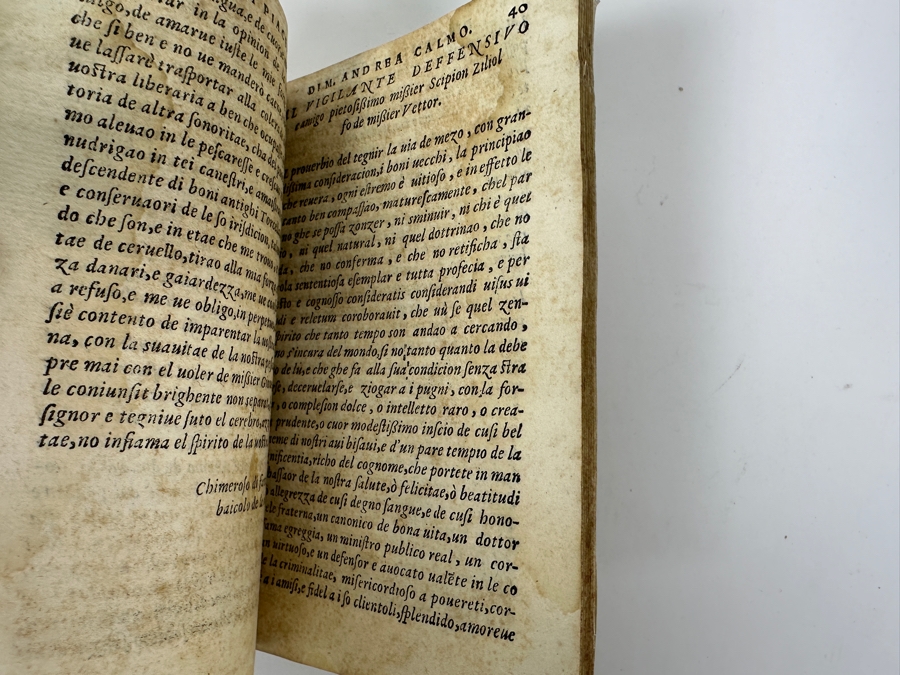 in la opinion de
migo, de amarue iuste le mie
che si ben e no ue manderò
ue lassarè trasportar alla colera
uostra liberaria a ben che ocupa
toria de altra sonoritae, cha del
mo aleuao in le pescaresse e cresc
nudrigao in tei canestri, e amae
descendente di boni antighi Torce
e conseruaori de le so irisdicion,
do che son, e in etae che me trouo
tae de ceruello, tirao alla mia forza
za danari, e gaiardezza, me ue
a refuso, e me ue obligo, in perpetuo
siè contento de imparentar la uostra
na, con la suauitae de la nostra
pre mai con el uoler de missier
le coniunsit brighente non separa
signor e tegniue suto el cerebro,
tae, no infiama el spirito de la
Chimeroso di
baicolo de
40
DI M. ANDREA CALMO.
IL VIGILANTE DEFFENSIVO
e amigo pietosissimo missier Scipion Ziliol
fo de missier Vettor.
prouerbio del tegnir la uia de mezo, con gran-
tissima consideracion, i boni uecchi, la principiao
che reuera, ogni estremo è uitioso, e in effetto le
tanto ben compassao, maturescamente, chel par
no ghe se possa zonzer, ni sminuir, ni chi è quel
io, ni quel natural, ni quel dottrinao, che no
da, che no conferma, e che no retificha, sta
ola sententiosa esemplar e tutta profecia, e per
sto e cognosso consideratis considerandi uisus ui
di e reletum coroborauit, che uù se quel zen-
pirito che tanto tempo son andao a cercando,
no s'incura del mondo, si no tanto quanto la debe
de lu, e che ghe fa alla sua condicion senza stra
se, deceruelarse, e ziogar a i pugni, con la for-
r, o complesion dolce, o intelletto raro, o crea-
prudente, o cuor modestissimo inscio de cusi bel
seme di nostri aui bisaui, e d'un pare tempo de la
nificentia, richo del cognome, che portete in man
bassaor de la nostra salute, ò felicitae, ò beatitudi
allegrezza de cusi degno sangue, e de cusi hono-
ele fraterna, un canonico de bona uita, un dottor
fama egreggia, un ministro publico real, un cor-
n uirtuoso, e un defensor e auocato ualẽte in le co
e la criminalitae, misericordioso a pouereti, cor-
a i amisi, e fidel a i so clientoli, splendido, amoreue